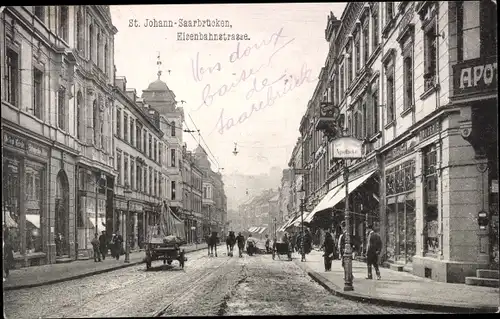 St. Johann-Saarbrücken,
Eisenbahnstrasse.
Vers doux
baiser
de
Saarbrück
APO
Apotheke